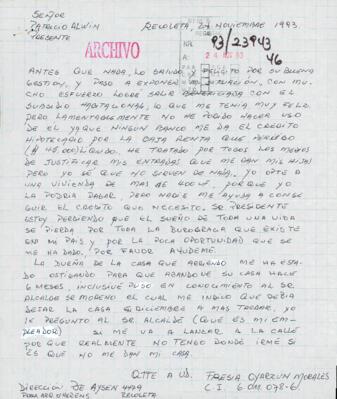 SEÑOR
PATRICIO ALWIN
PRESENTE
RECOLETA, NOVIEMBRE 1993.
ARCHIVO
NR. 93/23943
A: 24 93
46
ANTES QUE NADA, LO SALUDO Y FELICITO POR SU BUENA
GESTION, Y PASO A EXPONER MI SITUACION, CON MU-
CHO ESFUERZO LOGRE SALIR BENEFICIADA CON EL
SUBSIDIO HABITACIONAL, LO QUE ME TENIA MUY FELIZ.
PERO LAMENTABLEMENTE NO HE PODIDO HACER USO
DE EL YA QUE NINGUN BANCO ME DA EL CREDITO
HIPOTECARIO POR LA BAJA RENTA QUE PERCIBO
LIQUIDO. HE TRATADO POR TODOS LOS MEDIOS
DE JUSTIFICAR MIS ENTRADAS QUE ME DAN MIS HIJAS
PERO YO SE QUE NO SIRVEN DE NADA. YO OPTE A
UNA VIVIENDA DE MAS DE 400 UF, PORQUE YO
LA PODRIA PAGAR, PERO NADIE ME AYUDA A CONSE
GUIR EL CREDITO QUE NECESITO. SR PRESIDENTE
ESTOY PERDIENDO QUE EL SUEÑO DE TODA UNA VIDA
SE PIERDA POR TODA LA BUROGRACIA QUE EXISTE
EN MI PAIS Y POR LA POCA OPORTUNIDAD QUE SE
ME HA DADO, POR FAVOR AYUDEME.
LA DUEÑA DE LA CASA QUE ARRIENDO ME HA ESTA-
DO OSTIGANDO PARA QUE ABANDONE SU CASA HACE
6 MESES, INCLUSIVE PUSO EN CONOCIMIENTO AL SR.
ALCALDE SR MORENO EL CUAL ME INDICO QUE DEBIA
DEJAR LA CASA EN DICIEMBRE A MAS TARDAR, YO
LE PREGUNTO AL SR. ALCALDE (QUE ES MI EM-
PLEADOR) SI ME VA A LANZAR A LA CALLE
PORQUE REALMENTE NO TENGO DONDE IRME SI
ES QUE NO ME DAN MI CASA.
QTTE A UD. FRESIA OYARZUN MORALES
DIRECCION DE AYSEN 4479
C.I. 6.011.078-6
RECOLETA